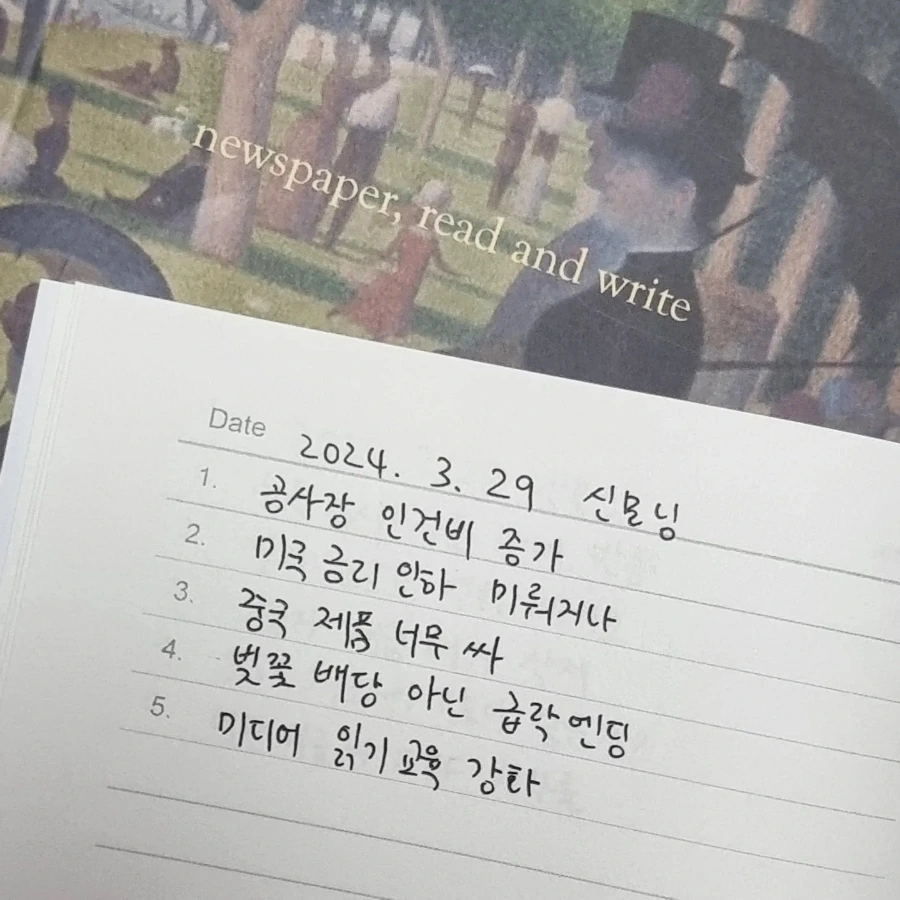 newspaper, read and write
Date 2024. 3. 29 신모닝
1. 공사장 인건비 증가
2. 미국 금리 인하 미뤄지나
3. 중국 제품 너무 싸
4. 벚꽃 배당 아닌 급락엔딩
5. 미디어 읽기 교육 강화